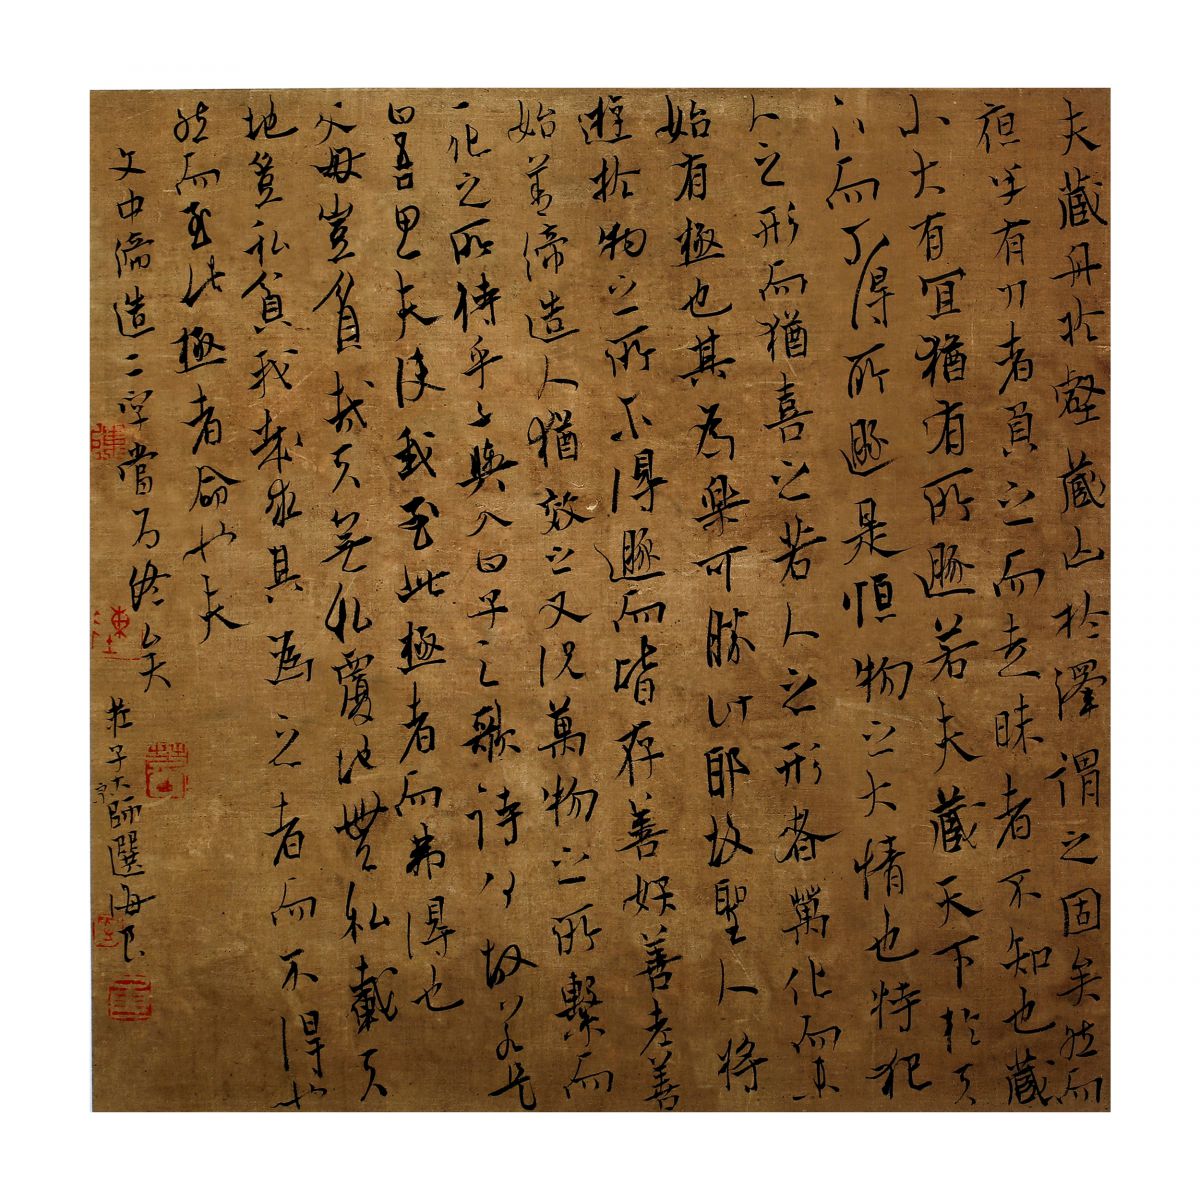 夫藏舟於壑藏山於澤謂之固矣然而
夜半有力者負之而走昧者不知也藏
小大有宜猶有所遯若夫藏天下於天
下而不得所遯是恒物之大情也特犯
人之形而猶喜之若人之形者萬化而未
始有極也其為樂可勝計耶故聖人將
遊於物之所不得遯而皆存善妖善老善
始善締造人猶效之又況萬物之所繫而
一化之所待乎子輿入曰子之歌詩何故若是
曰吾思夫使我至此極者而弗得也
父母豈貧哉天無私覆地無私載天
地豈私貧我哉求其為之者而不得也
然而至此極者命也夫
文中締造二字當為終矣
莊子大宗師選